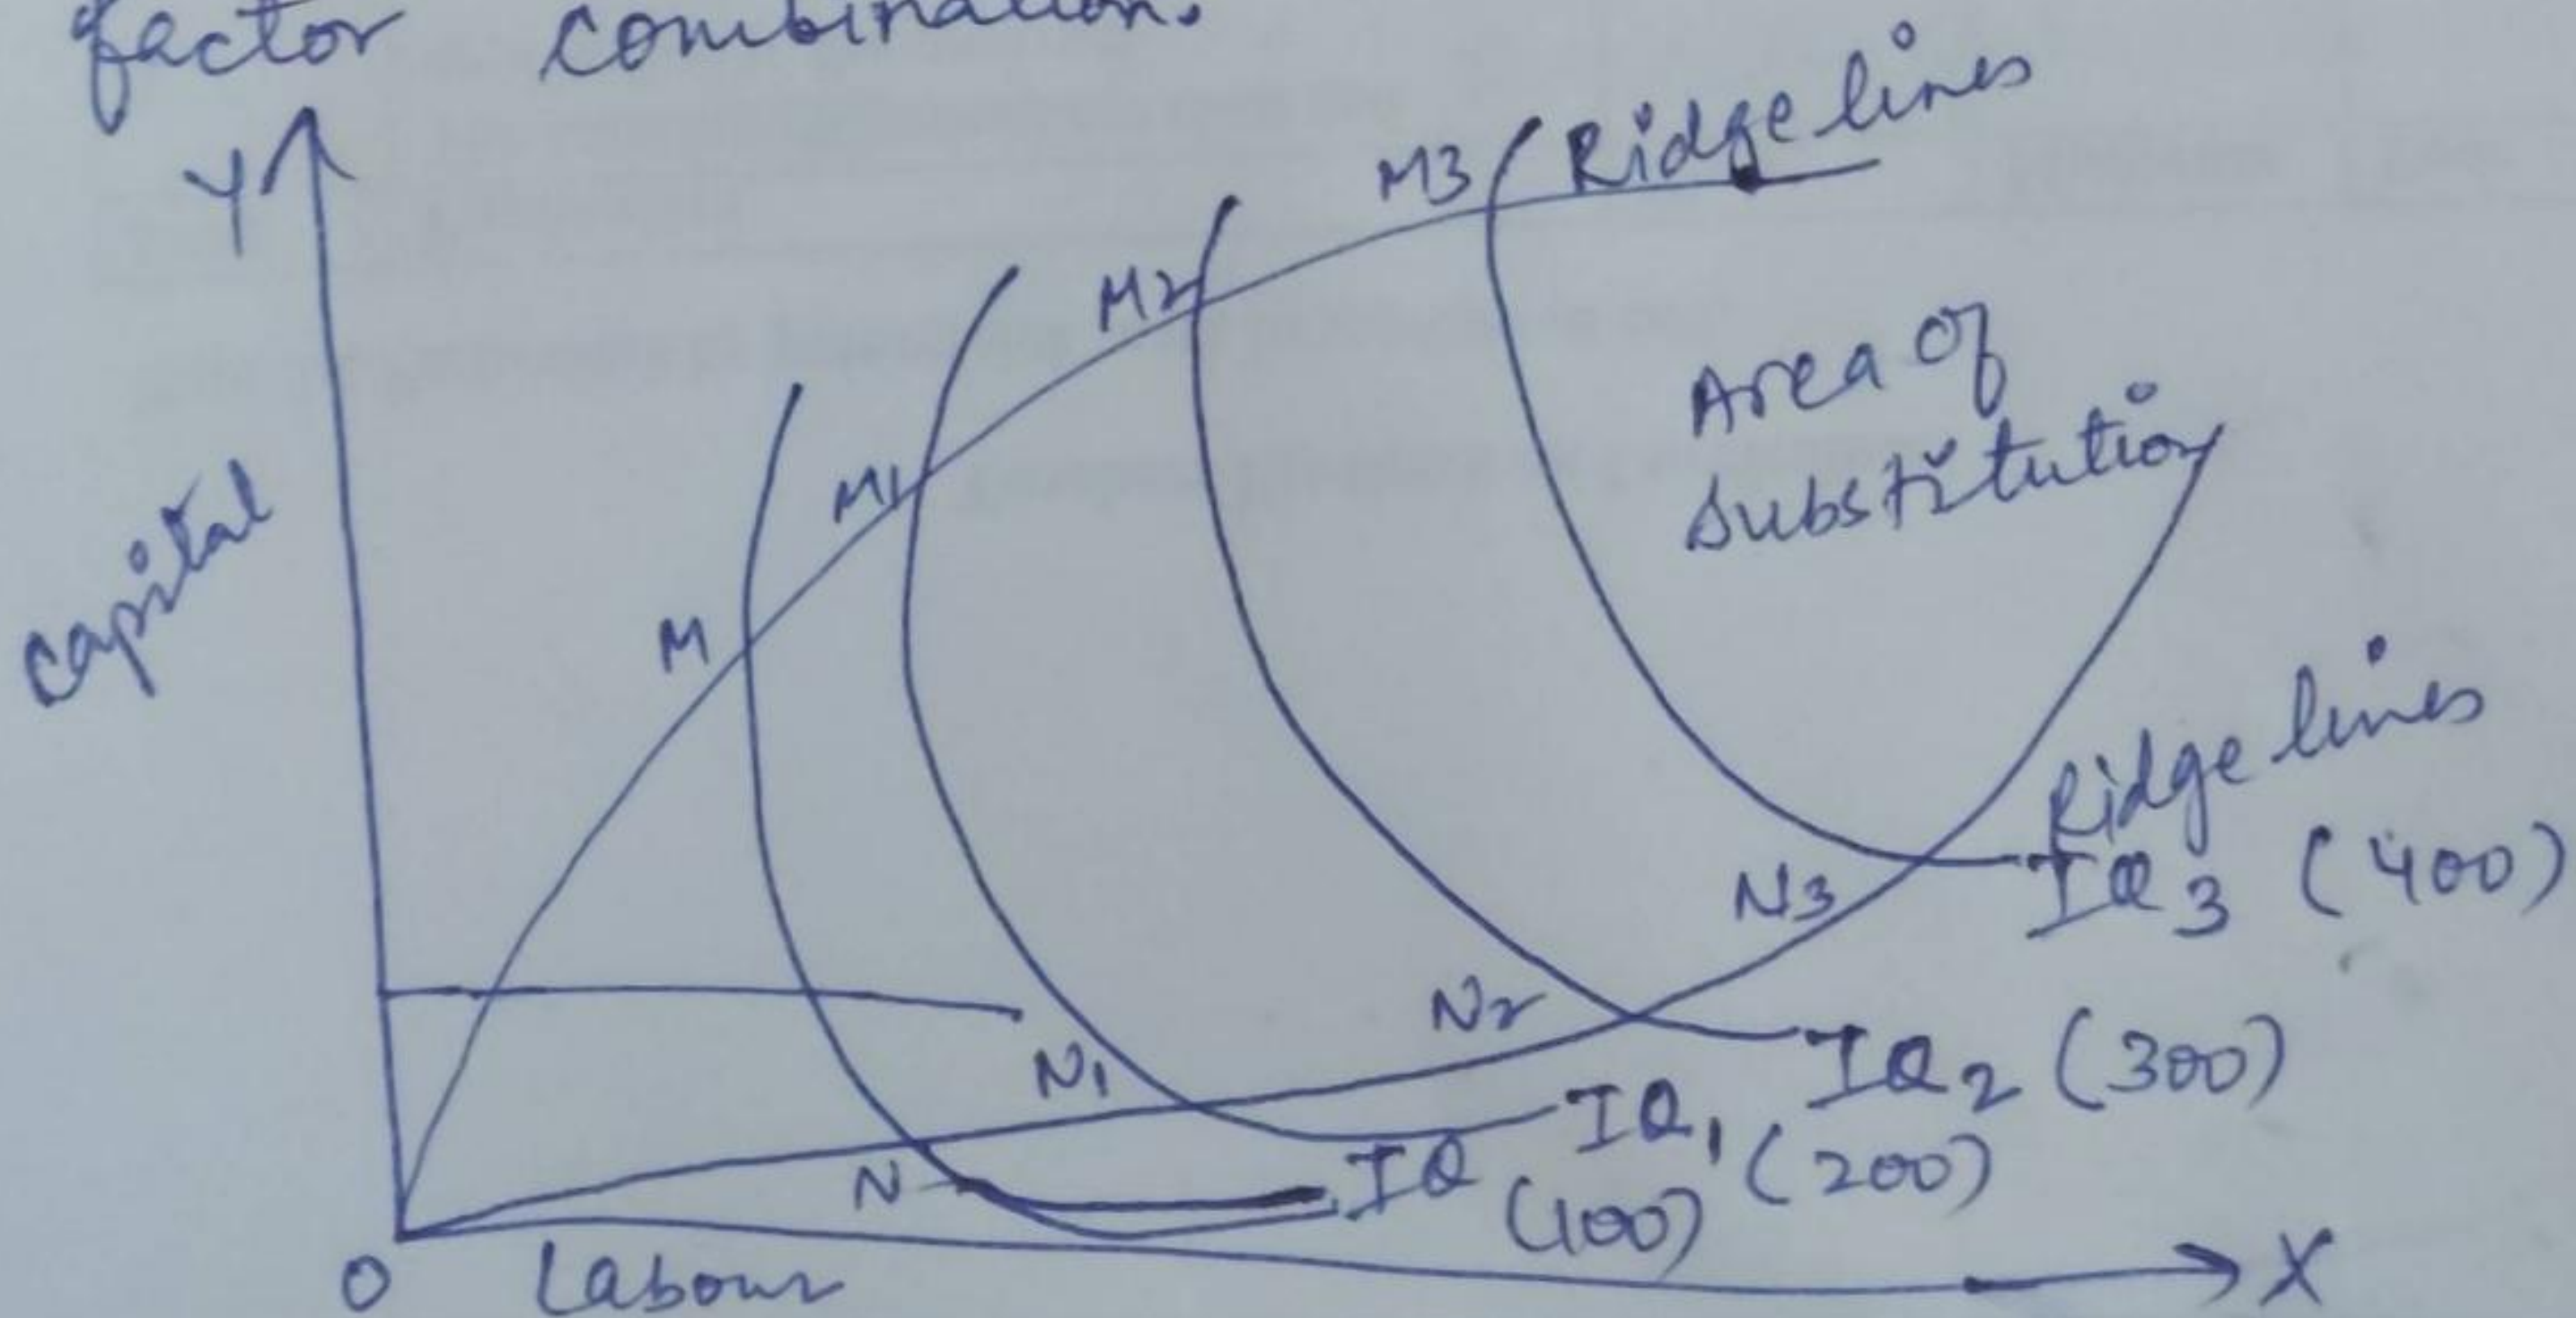 factor combination.
Y
M3 Ridge lines
M2
Area of
substitution
M1
Capital
M
Ridge lines
N3
IQ3 (400)
N2
IQ2 (300)
N1
IQ1 (200)
N
IQ (100)
O
Labour
X